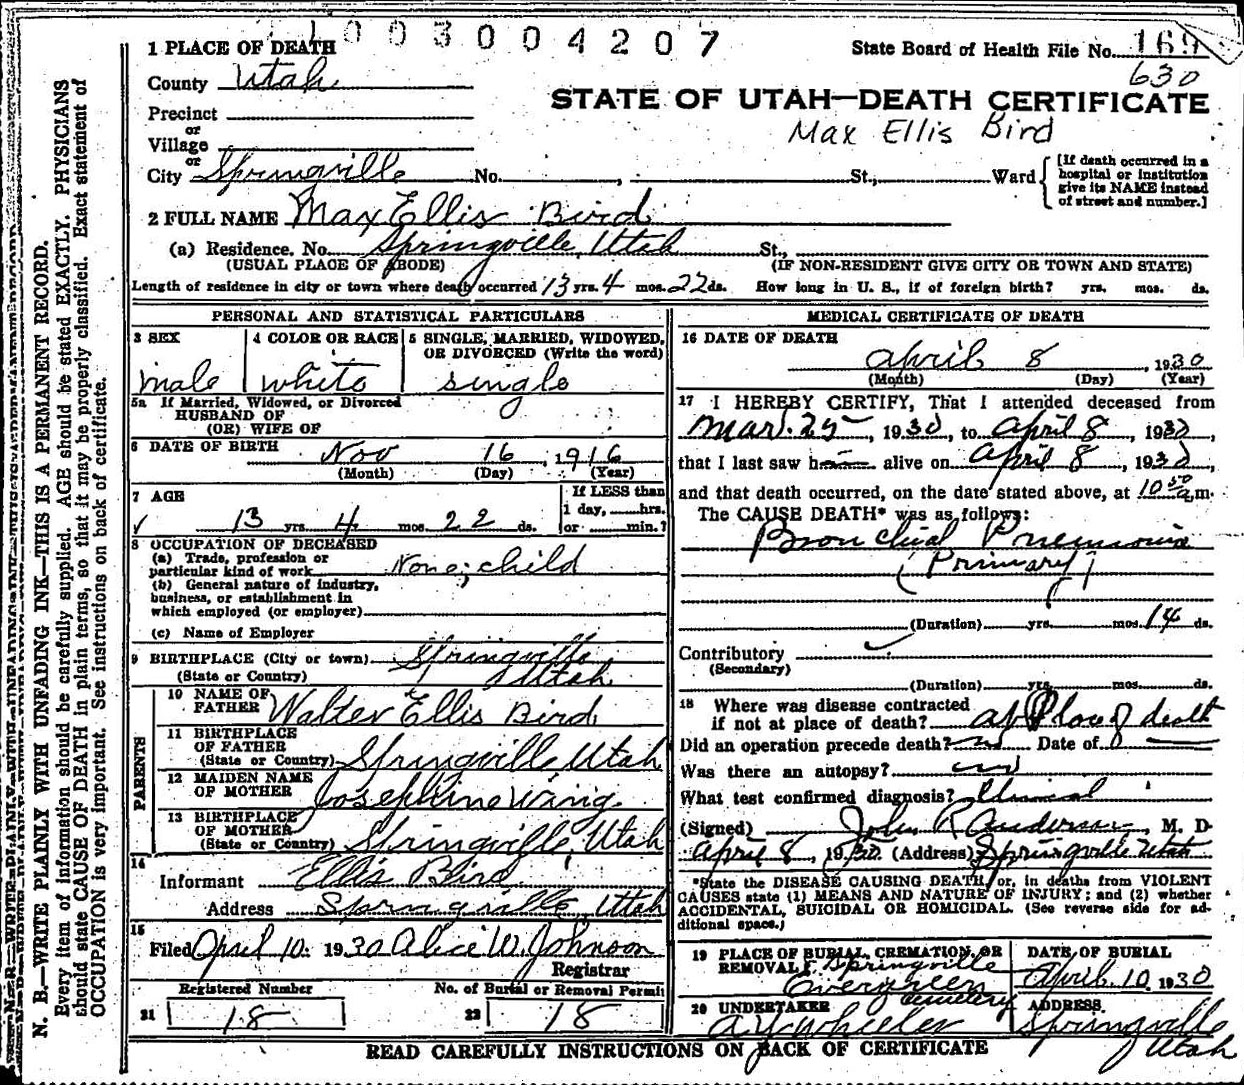 1003004207
1 PLACE OF DEATH
State Board of Health File No. 169
County Utah
630
STATE OF UTAH—DEATH CERTIFICATE
Precinct
or
Max Ellis Bird
Village
or
City Springville No. , St., Ward
[If death occurred in a hospital or institution give its NAME instead of street and number.]
2 FULL NAME Max Ellis Bird
(a) Residence. No. Springville, Utah St.,
(USUAL PLACE OF ABODE) (IF NON-RESIDENT GIVE CITY OR TOWN AND STATE)
Length of residence in city or town where death occurred 13 yrs. 4 mos. 22 ds. How long in U. S., if of foreign birth? yrs. mos. ds.
N. B.—WRITE PLAINLY WITH UNFADING INK—THIS IS A PERMANENT RECORD.
Every item of information should be carefully supplied. AGE should be stated EXACTLY. PHYSICIANS
should state CAUSE OF DEATH in plain terms, so that it may be properly classified. Exact statement of
OCCUPATION is very important. See instructions on back of certificate.
PERSONAL AND STATISTICAL PARTICULARS
3 SEX
male
4 COLOR OR RACE
white
5 SINGLE, MARRIED, WIDOWED, OR DIVORCED (Write the word)
single
5a If Married, Widowed, or Divorced
HUSBAND OF
(OR) WIFE OF
6 DATE OF BIRTH Nov 16, 1916
(Month) (Day) (Year)
7 AGE
13 yrs. 4 mos. 22 ds.
If LESS than
1 day, hrs.
or min.?
8 OCCUPATION OF DECEASED
(a) Trade, profession or
particular kind of work None; child
(b) General nature of industry,
business, or establishment in
which employed (or employer)
(c) Name of Employer
9 BIRTHPLACE (City or town) Springville
(State or Country) Utah
PARENTS
10 NAME OF FATHER Walter Ellis Bird
11 BIRTHPLACE OF FATHER
(State or Country) Springville Utah
12 MAIDEN NAME OF MOTHER Josephine Wing
13 BIRTHPLACE OF MOTHER
(State or Country) Springville, Utah
14
Informant Ellis Bird
Address Springville, Utah
15
Filed April 10. 1930 Alice W. Johnson
Registrar
Registered Number No. of Burial or Removal Permit
21 18 22 18
MEDICAL CERTIFICATE OF DEATH
16 DATE OF DEATH
April 8, 1930
(Month) (Day) (Year)
17 I HEREBY CERTIFY, That I attended deceased from
Mar. 25, 1930, to April 8, 1930,
that I last saw h alive on April 8, 1930,
and that death occurred, on the date stated above, at 10 50 a.m.
The CAUSE DEATH* was as follows:
Bronchial Pneumonia
(Primary)
(Duration) yrs. mos. 14 ds.
Contributory
(Secondary)
(Duration) yrs. mos. ds.
18 Where was disease contracted
if not at place of death? at Place of death
Did an operation precede death? no Date of
Was there an autopsy? no
What test confirmed diagnosis? Clinical
(Signed) John R Anderson, M. D.
April 8, 1930 (Address) Springville Utah
*State the DISEASE CAUSING DEATH, or, in deaths from VIOLENT
CAUSES state (1) MEANS AND NATURE OF INJURY; and (2) whether
ACCIDENTAL, SUICIDAL OR HOMICIDAL. (See reverse side for ad-
ditional space.)
19 PLACE OF BURIAL, CREMATION, OR
REMOVAL Springville
Evergreen Cemetery
DATE OF BURIAL
April 10, 1930
20 UNDERTAKER
A.Y. Wheeler
ADDRESS
Springville
Utah
READ CAREFULLY INSTRUCTIONS ON BACK OF CERTIFICATE